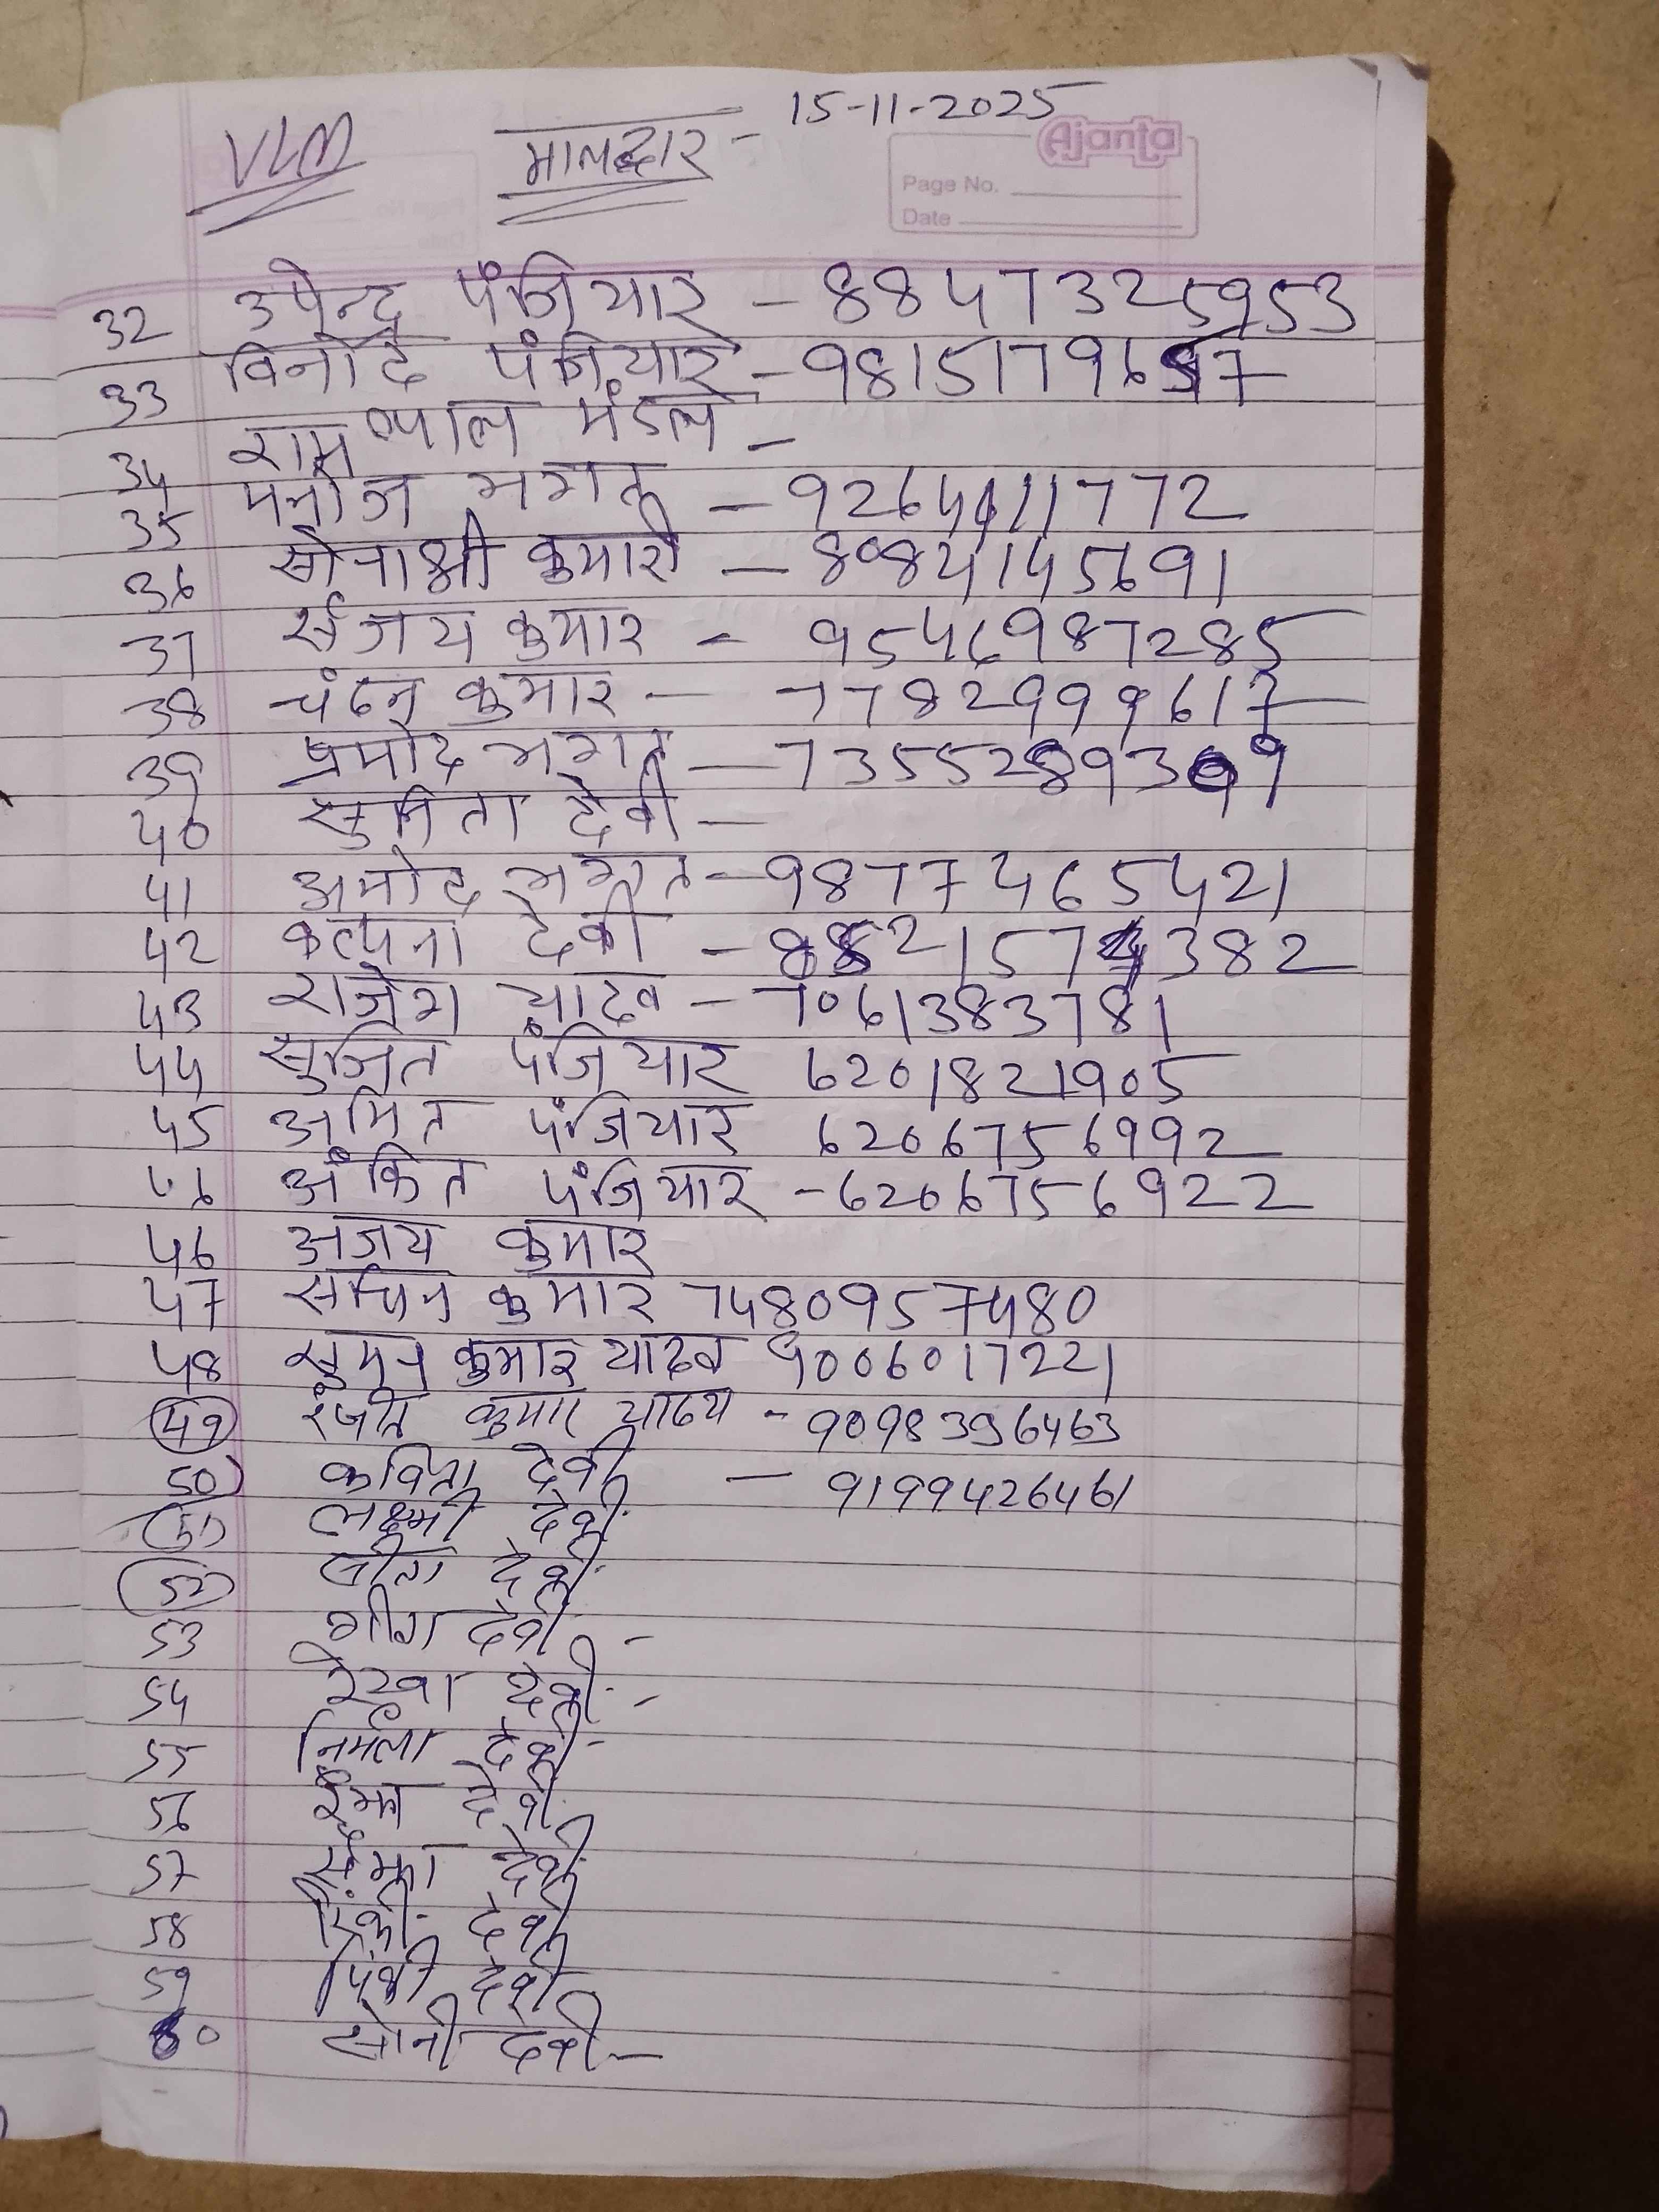 VLM मालद्दार - 15-11-2025
Ajanta
Page No.
Date
32 उपेन्द्र पंजियार - 8847325953
33 विनोद पंजियार - 9815179657
34 राम पाल मंडल -
35 मनोज भगत - 9264611772
36 सोनाक्षी कुमारी - 8084145691
37 संजय कुमार - 9546987285
38 चंदन कुमार - 7782999617
39 प्रमोद भगत - 7355289399
40 सुनिता देवी -
41 अमोद भगत - 9877465421
42 कल्पना देवी - 8821574382
43 राजेश यादव - 7061383781
44 सुजित पंजियार 6201821905
45 अमित पंजियार 6206756992
46 अंकित पंजियार - 6206756922
46 अजय कुमार
47 सचिन कुमार 7480957480
48 सुमन कुमार यादव 9006017221
49 रंजीत कुमार यादव - 9098396463
50) कविता देवी - 9199426461
51) लक्ष्मी देवी
52) सीता देवी
53 गीता देवी -
54 रेखा देवी -
55 निर्मला देवी -
56 देवी
57 देवी
58 रिंकी देवी
59 पिंकी देवी
60 सोनी देवी -